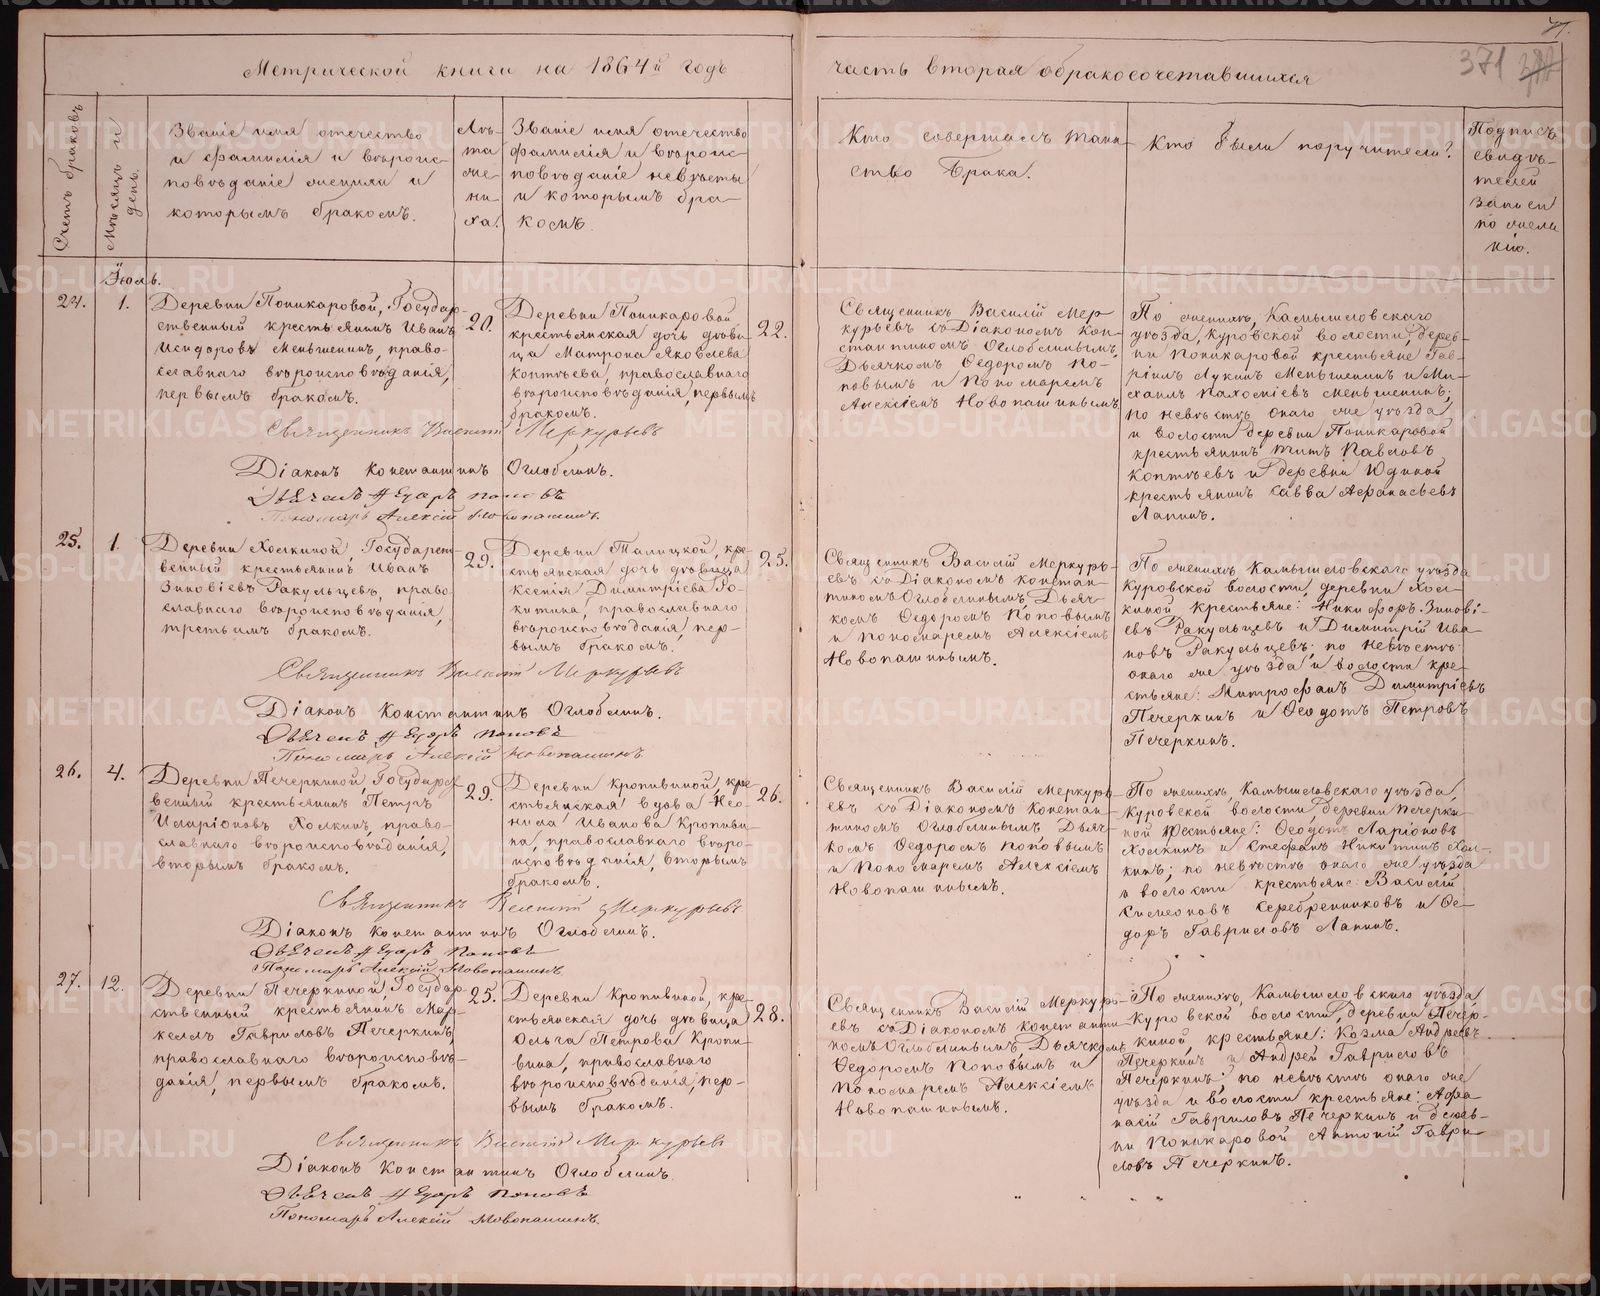 71.
371
Метрической книги на 1864й годъ
часть вторая о бракосочетавшихся
Счетъ браковъ
Мѣсяцъ и
день.
Званіе имя отечество
и фамилія и вѣроис-
повѣданіе жениха и
которымъ бракомъ.
Лѣ-
та
же-
ни-
ха.
Званіе имя отечество
фамилія и вѣроис-
повѣданіе невѣсты
и которымъ бра-
комъ.
Кто совершалъ таин-
ство брака.
Кто были поручители?
Подпись
свидѣ-
телей
записи
по жела
нію.
Іюль.
24.
1.
Деревни Поникаровой, Государ-
ственный крестьянинъ Иванъ
Исидоровъ Меньшенинъ, право-
славнаго вѣроисповѣданія,
первымъ бракомъ.
20.
Деревни Поникаровой
крестьянская дочь дѣви-
ца Матрона Яковлева
Коптѣева, православнаго
вѣроисповѣданія, первымъ
бракомъ.
22.
Священникъ Василій Мер-
курьевъ съ Діакономъ Кон-
стантиномъ Оглоблинымъ,
Дьячкомъ Ѳедоромъ По-
повымъ и Пономаремъ
Алексіемъ Новопашинымъ.
По женихѣ, Камышловскаго
уѣзда, Куровской волости, дерев-
ни Поникаровой крестьяне Гав-
ріилъ Лукинъ Меньшенинъ и Ми-
хаилъ Пахоміевъ Меньшенинъ;
по невѣстѣ онаго же уѣзда
и волости деревни Поникаровой
крестьянинъ Титъ Павловъ
Коптѣевъ и деревни Юдиной
крестьянинъ Савва Аѳанасьевъ
Лапинъ.
Священникъ Василій Меркурьевъ
Діаконъ Константинъ Оглоблинъ.
Дьячекъ Ѳедоръ Поповъ
Пономарь Алексій Новопашинъ.
25.
1.
Деревни Холкиной, Государст-
венный крестьянинъ Иванъ
Зиновіевъ Ракульцевъ, право-
славнаго вѣроисповѣданія,
третьимъ бракомъ.
29.
Деревни Талицкой, кре-
стьянская дочь дѣвица
Ксенія Димитріева Ро-
китина, православнаго
вѣроисповѣданія, пер-
вымъ бракомъ.
25.
Священникъ Василій Меркурь-
евъ съ Діакономъ Констан-
тиномъ Оглоблинымъ, Дьяч-
комъ Ѳедоромъ Поповымъ
и Пономаремъ Алексіемъ
Новопашинымъ.
По женихѣ Камышловскаго уѣзда
Куровской волости, деревни Хол-
киной, крестьяне: Никифоръ Зинові-
евъ Ракульцевъ и Димитрій Ива-
новъ Ракульцевъ; по невѣстѣ
онаго же уѣзда и волости кре-
стьяне: Митрофанъ Димитріевъ
Печеркинъ и Ѳеодотъ Петровъ
Печеркинъ.
Священникъ Василій Меркурьевъ
Діаконъ Константинъ Оглоблинъ.
Дьячекъ Ѳедоръ Поповъ
Пономарь Алексій Новопашинъ
26.
4.
Деревни Печеркиной, Государст-
венный крестьянинъ Петръ
Иларіоновъ Холкинъ, право-
славнаго вѣроисповѣданія,
вторымъ бракомъ.
29.
Деревни Кропивиной, кре-
стьянская вдова Нео-
нила Иванова Кропиви-
на, православнаго вѣро-
исповѣданія, вторымъ
бракомъ.
26.
Священникъ Василій Меркурь-
евъ съ Діакономъ Констан-
тиномъ Оглоблинымъ, Дьяч-
комъ Ѳедоромъ Поповымъ
и Пономаремъ Алексіемъ
Новопашинымъ.
По женихѣ, Камышловскаго уѣзда,
Куровской волости, деревни Печерки-
ной крестьяне: Ѳеодотъ Ларіоновъ
Холкинъ и Стефанъ Никитинъ Хол-
кинъ; по невѣстѣ онаго же уѣзда
и волости крестьяне: Василій
Симеоновъ Серебренниковъ и Ѳе-
доръ Гавриловъ Лапинъ.
Священникъ Василій Меркурьевъ
Діаконъ Константинъ Оглоблинъ.
Дьячекъ Ѳедоръ Поповъ
Пономарь Алексій Новопашинъ
27.
12.
Деревни Печеркиной, Государ-
ственный крестьянинъ Мар-
келъ Гавриловъ Печеркинъ,
православнаго вѣроисповѣ-
данія, первымъ бракомъ.
25.
Деревни Кропивиной, кре-
стьянская дочь дѣвица
Ольга Петрова Кропи-
вина, православнаго
вѣроисповѣданія, пер-
вымъ бракомъ.
28.
Священникъ Василій Меркурь-
евъ съ Діакономъ Константи-
номъ Оглоблинымъ, Дьячкомъ
Ѳедоромъ Поповымъ и
Пономаремъ Алексіемъ
Новопашинымъ.
По женихѣ, Камышловскаго уѣзда
Куровской волости, деревни Печер-
киной, крестьяне: Козма Андреевъ
Печеркинъ и Андрей Гавриловъ
Печеркинъ; по невѣстѣ онаго же
уѣзда и волости крестьяне: Аѳа-
насій Гавриловъ Печеркинъ и дерев-
ни Поникаровой Антоній Гаври-
ловъ Печеркинъ.
Священникъ Василій Меркурьевъ
Діаконъ Константинъ Оглоблинъ.
Дьячекъ Ѳедоръ Поповъ
Пономарь Алексій Новопашинъ.
METRIKI.GASO-URAL.RU